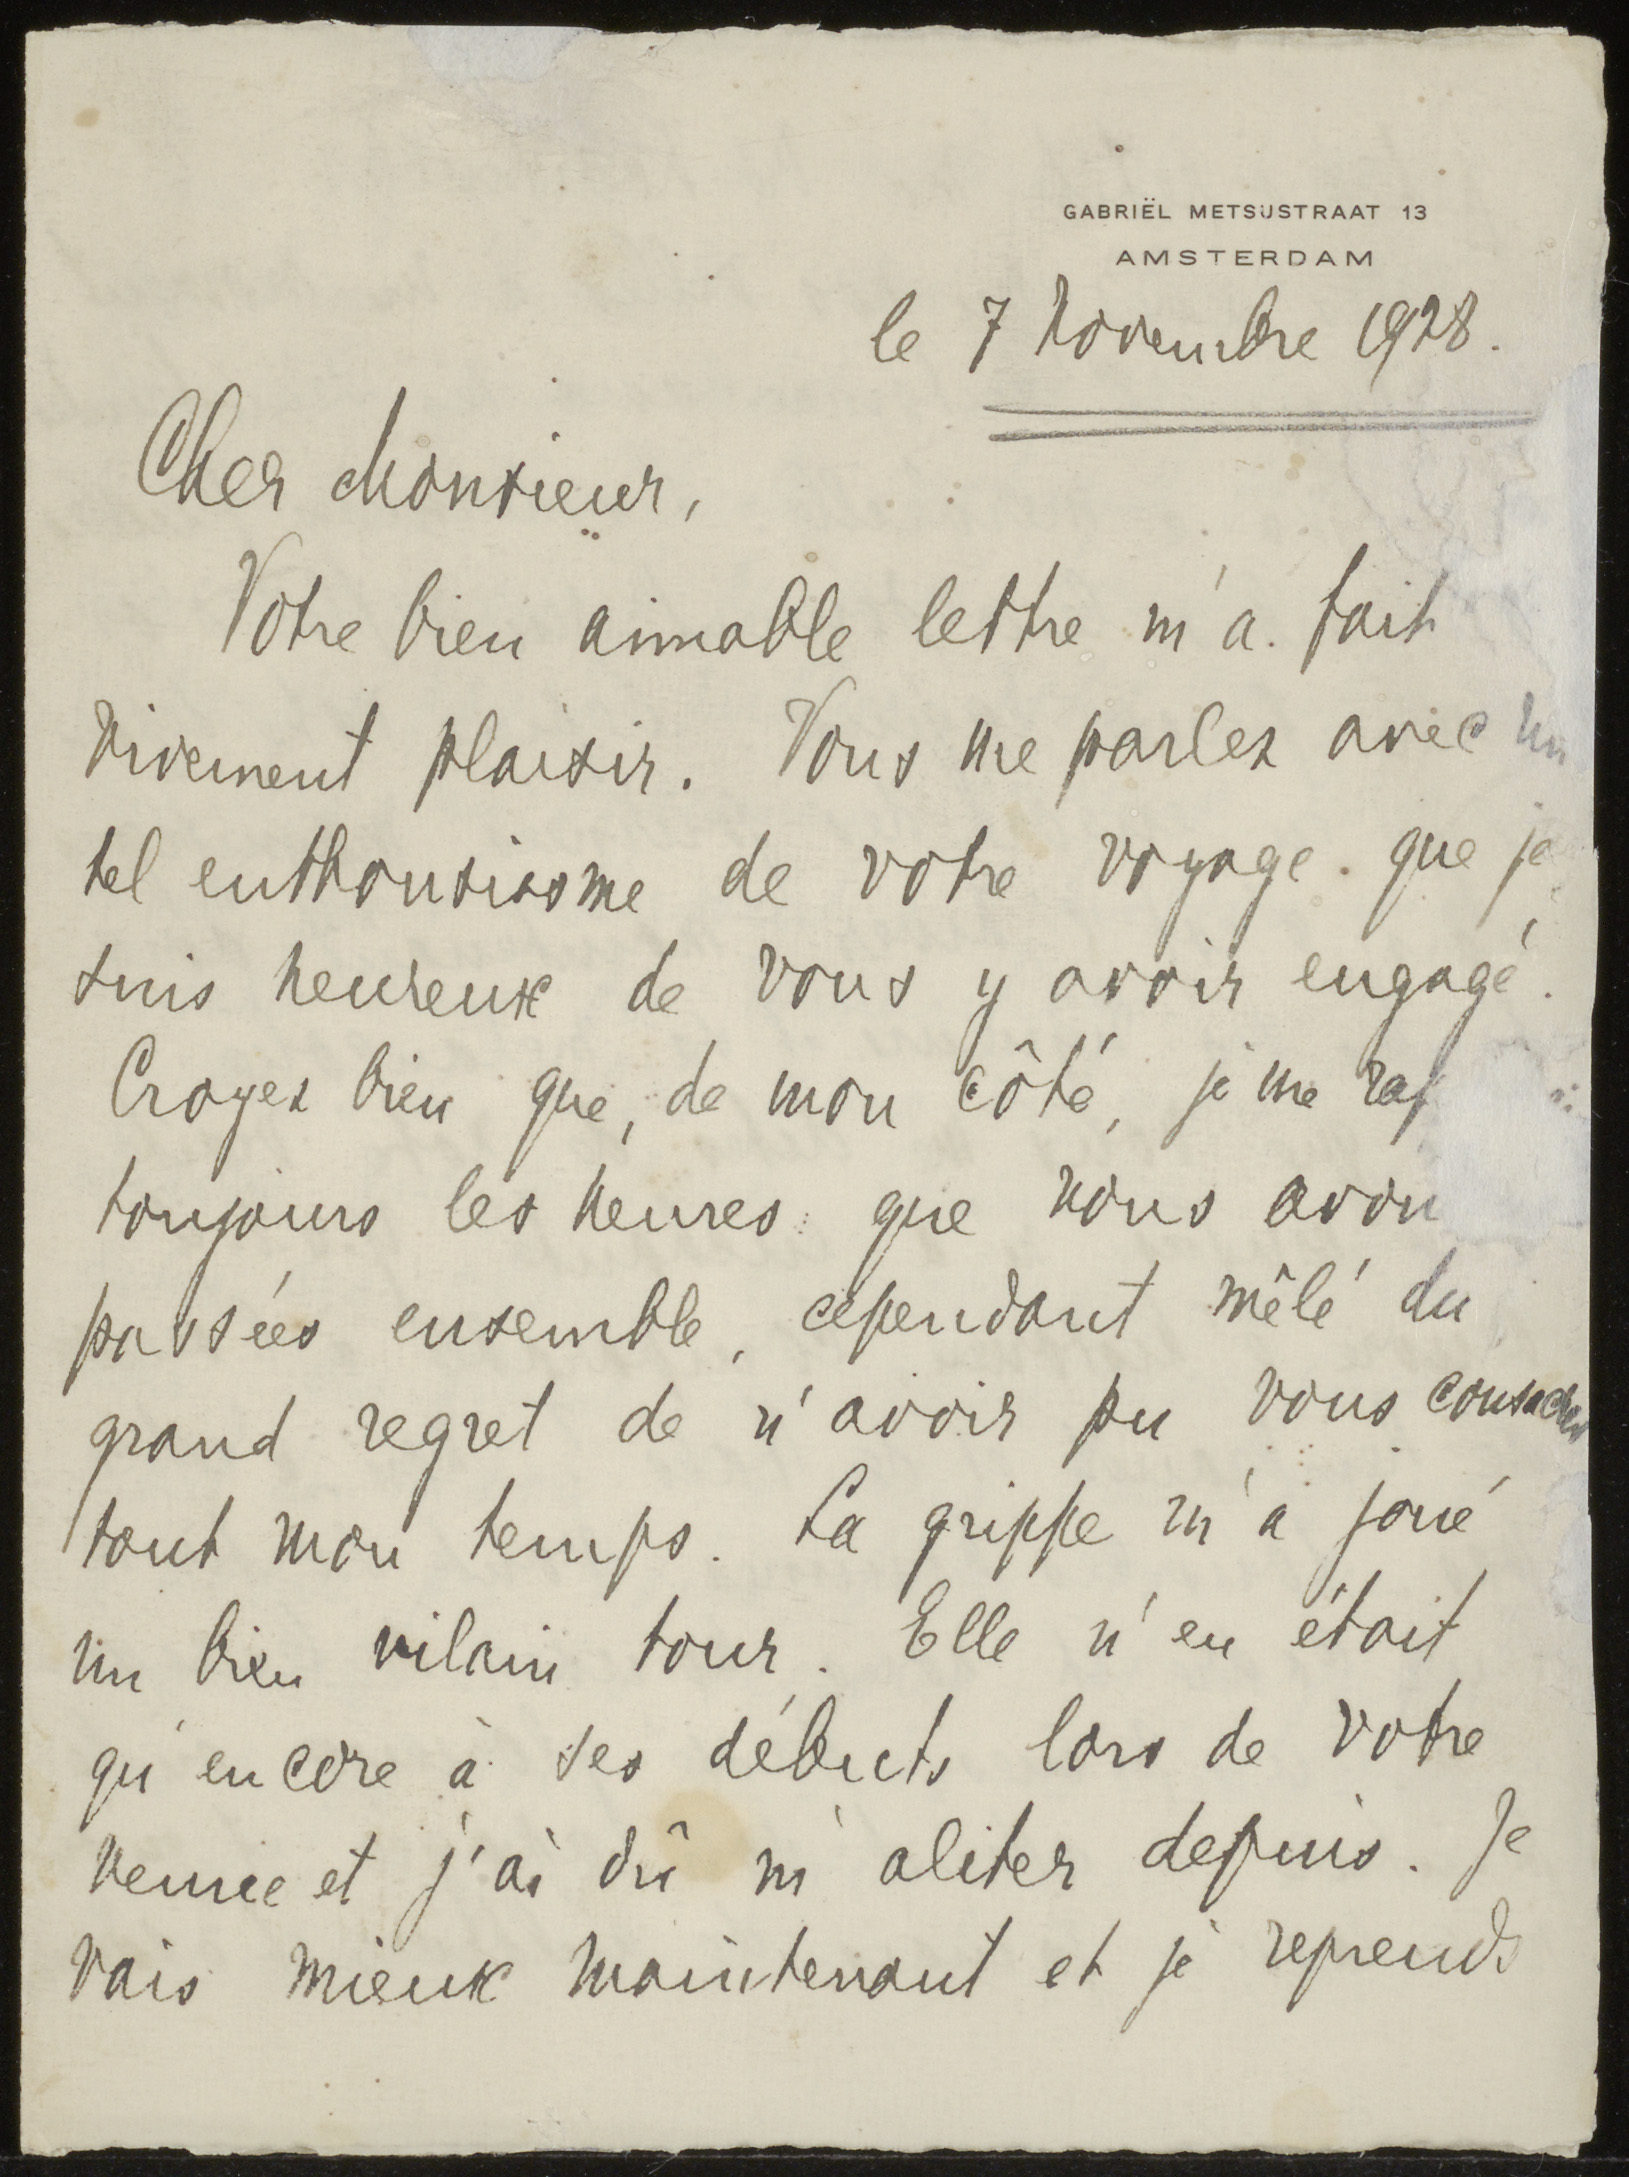 GABRIËL METSUSTRAAT 13
AMSTERDAM
le 7 Novembre 1928.
Cher Monsieur,
Votre bien aimable lettre m'a fait
vivement plaisir. Vous me parlez avec un
tel enthousiasme de votre voyage que je
suis heureux de vous y avoir engagé.
Croyez bien que, de mon côté, je me
toujours les heures que nous avon
passées ensemble, cependant mêlé du
grand regret de n'avoir pu vous consacrer
tout mon temps. La grippe m'a joué
un bien vilain tour. Elle n'en était
qu'encore à ses débuts lors de votre
venue et j'ai dû m'aliter depuis. Je
vais mieux maintenant et je reprends